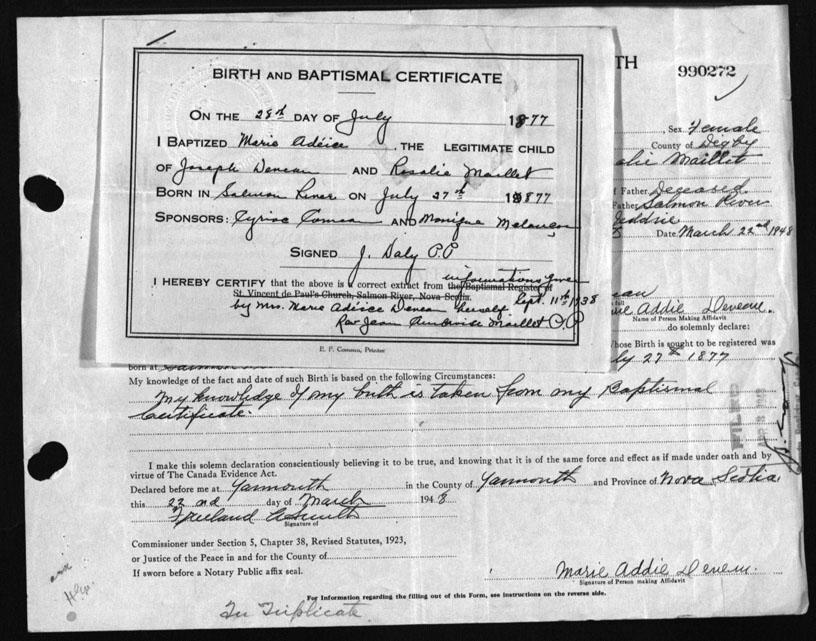 BIRTH AND BAPTISMAL CERTIFICATE
ON THE 28th DAY OF July 1877
I BAPTIZED Marie Adéice, THE LEGITIMATE CHILD
OF Joseph Deneau AND Rosalie Maillet
BORN IN Salmon River ON July 27th 1877
SPONSORS: AND Monique Melanson
SIGNED J. Daly P.P
I HEREBY CERTIFY that the above is a correct extract from the Baptismal Register of informations given
St. Vincent de Paul's Church, Salmon River, Nova Scotia. Sept. 11th, 1938
by Mrs. Marie Adéice Deneau herself
Rev Jean Ambroise Maillet P.P
E. P. Comeau, Printer
TH
990272
, Sex Female
County of Digby
alie Maillet
f Father Deceased
Father Salmon River
Date March 22nd 1948
ie Addie Deveau
Name of Person Making Affidavit
do solemnly declare:
hose Birth is sought to be registered was
ly 27th 1877
born at
My knowledge of the fact and date of such Birth is based on the following Circumstances:
My knowledge of my birth is taken from my Baptismal
Certificate.
FILED
I make this solemn declaration conscientiously believing it to be true, and knowing that it is of the same force and effect as if made under oath and by
virtue of The Canada Evidence Act.
Declared before me at Yarmouth in the County of Yarmouth and Province of Nova Scotia
this 22nd day of March 1948
Signature of
Commissioner under Section 5, Chapter 38, Revised Statutes, 1923,
or Justice of the Peace in and for the County of
If sworn before a Notary Public affix seal.
Marie Addie Deveau
Signature of Person making Affidavit
For Information regarding the filling out of this Form, see instructions on the reverse side.
In Triplicate